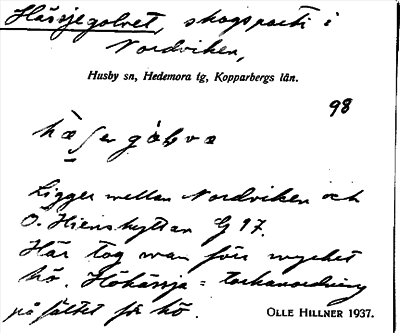 Hässjegolvet, skogsparti i
Nordviken,
Husby sn, Hedemora tg, Kopparbergs län.
98
Ligger mellan Nordviken och
Ö. Hienshyttan G 97.
Här tog man förr mycket
hö. Höhässja = torkanordning
på fältet för hö.
OLLE HILLNER 1937.